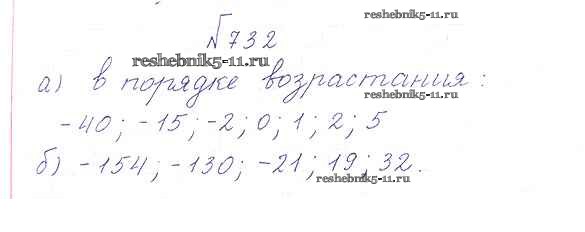 reshebnik5-11.ru
№732
reshebnik5-11.ru
а) в порядке возрастания:
-40; -15; -2; 0; 1; 2; 5
reshebnik5-11.ru
б) -154; -130; -21; 19; 32.
reshebnik5-11.ru